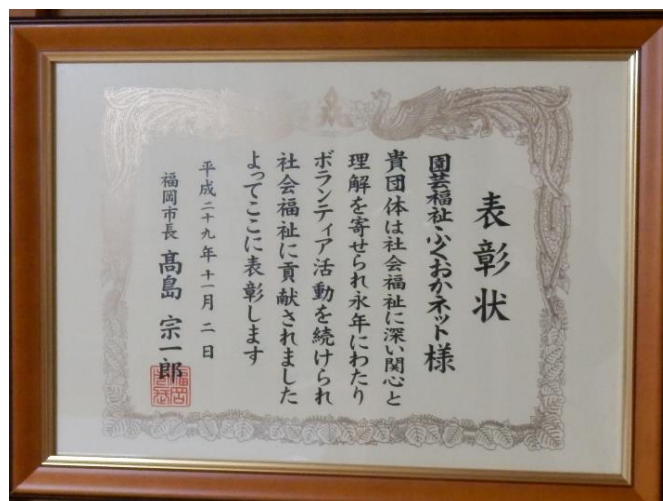 表彰状
園芸福祉ふくおかネット様
貴団体は社会福祉に深い関心と
理解を寄せられ永年にわたり
ボランティア活動を続けられ
社会福祉に貢献されました
よってここに表彰します
平成二十九年十一月二日
福岡市長 髙島宗一郎